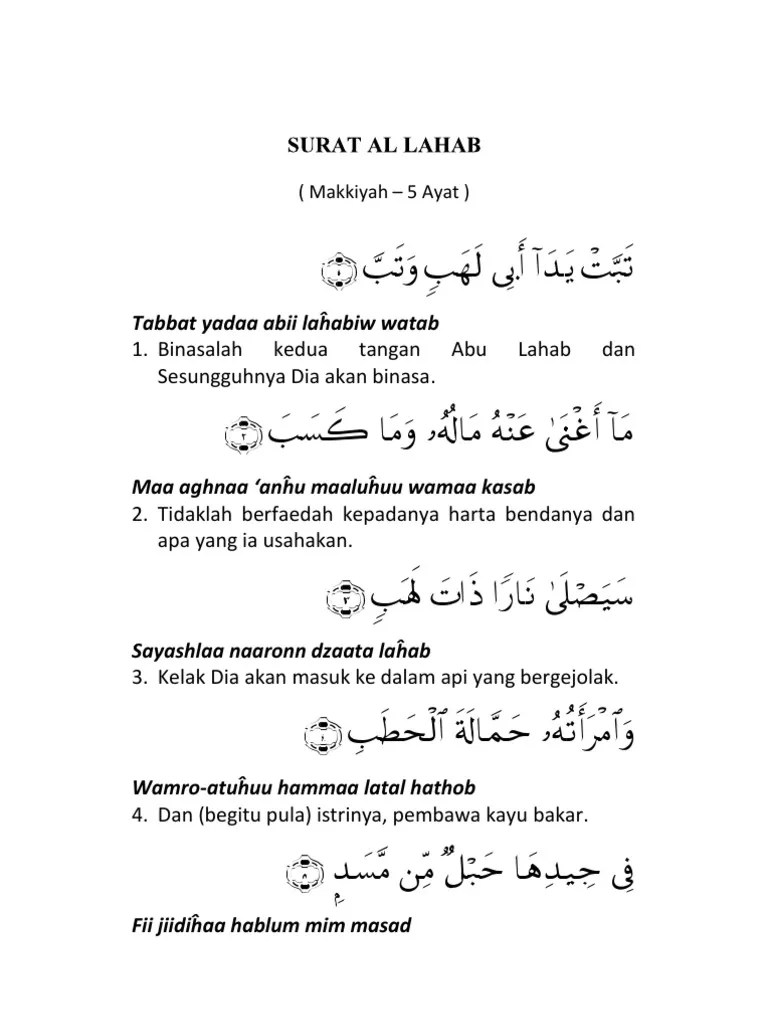 SURAT AL LAHAB
( Makkiyah – 5 Ayat )
تَبَّتۡ يَدَآ أَبِي لَهَبٖ وَتَبَّ ١
Tabbat yadaa abii laĥabiw watab
1. Binasalah kedua tangan Abu Lahab dan
Sesungguhnya Dia akan binasa.
مَآ أَغۡنَىٰ عَنۡهُ مَالُهُۥ وَمَا كَسَبَ ٢
Maa aghnaa ‘anĥu maaluĥuu wamaa kasab
2. Tidaklah berfaedah kepadanya harta bendanya dan
apa yang ia usahakan.
سَيَصۡلَىٰ نَارٗا ذَاتَ لَهَبٖ ٣
Sayashlaa naaronn dzaata laĥab
3. Kelak Dia akan masuk ke dalam api yang bergejolak.
وَٱمۡرَأَتُهُۥ حَمَّالَةَ ٱلۡحَطَبِ ٤
Wamro-atuĥuu hammaa latal hathob
4. Dan (begitu pula) istrinya, pembawa kayu bakar.
فِي جِيدِهَا حَبۡلٞ مِّن مَّسَدِۭ ٥
Fii jiidiĥaa hablum mim masad